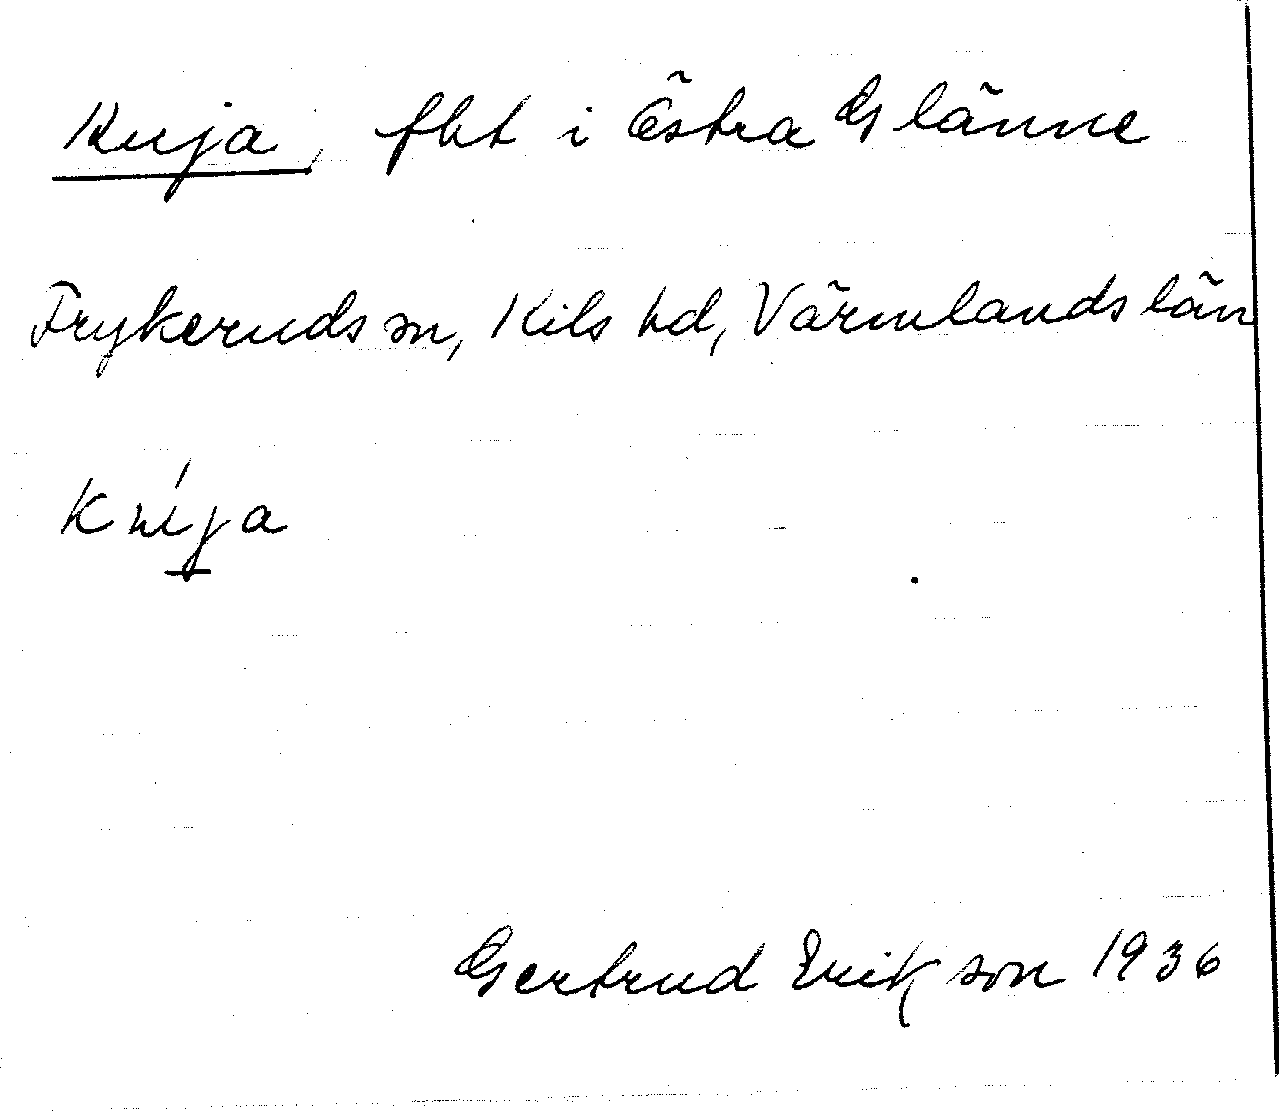 Kuja, fbt i Östra Glänne
Frykeruds sn, Kils hd, Värmlands län
Kúja
Gertrud Erikson 1936